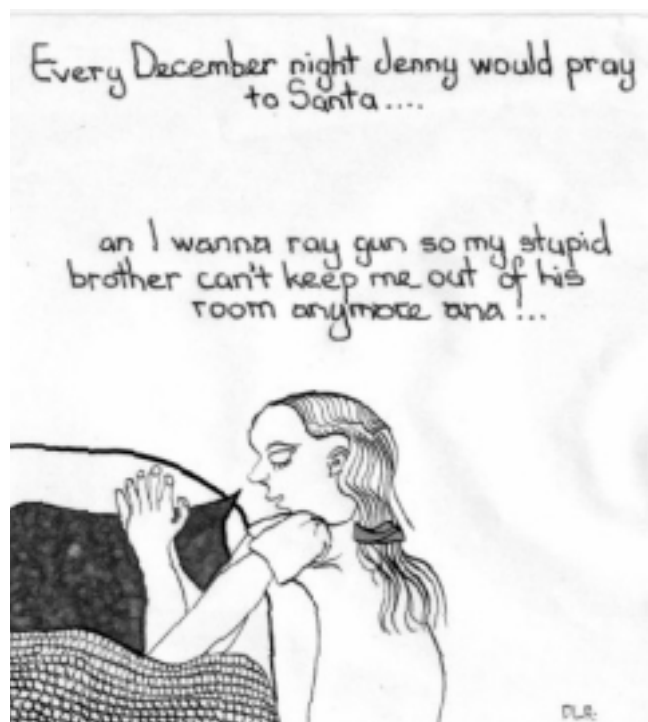 Every December night Jenny would pray
to Santa....
an I wanna ray gun so my stupid
brother can't keep me out of his
room anymore ana !...